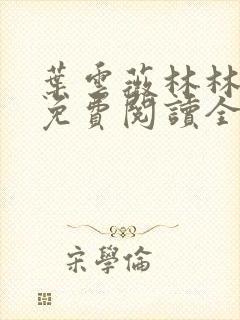 葉雲薇林林
免費閱讀全
宋學倫